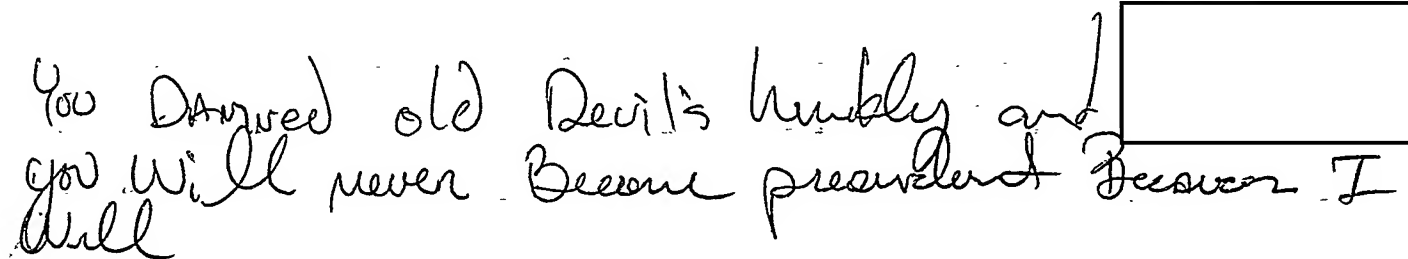 You Damned old Devil's Hinckley and
you Will never Become president Because I
Will